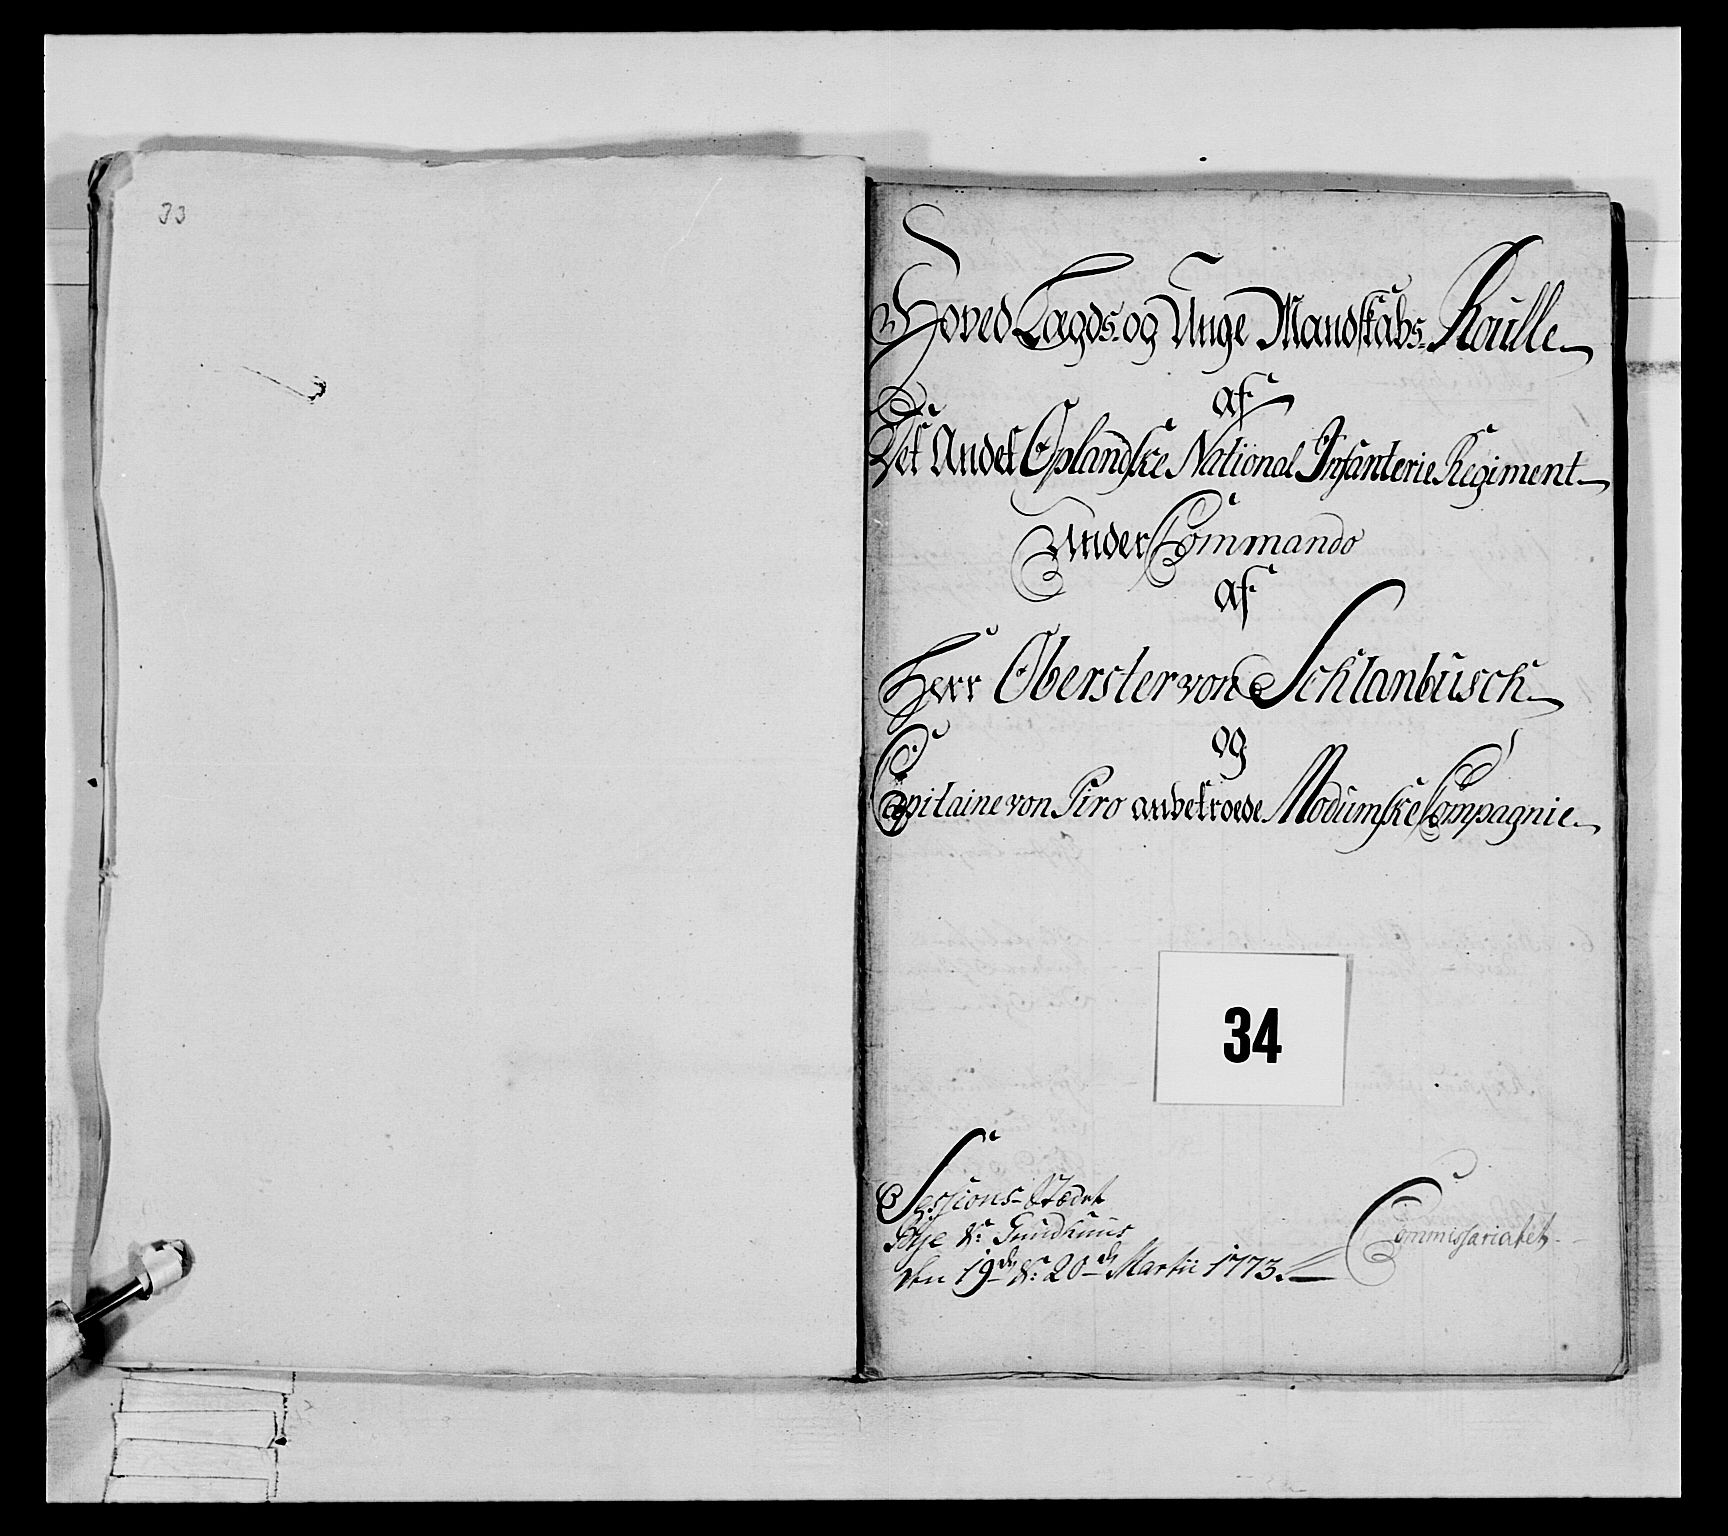 33
Hoved Lægds- og Unge Mandskabs-Roulle
af
Det Andet Oplandske National Infanterie Regiment
Under Commando
af
Herr Oberster von Schlanbusch
og
Capitaine von Piro anbetroede Modumske Compagnie
34
Sessions-Stædet
&:
den 19de &: 20de Martii 1773.
Commissariatet